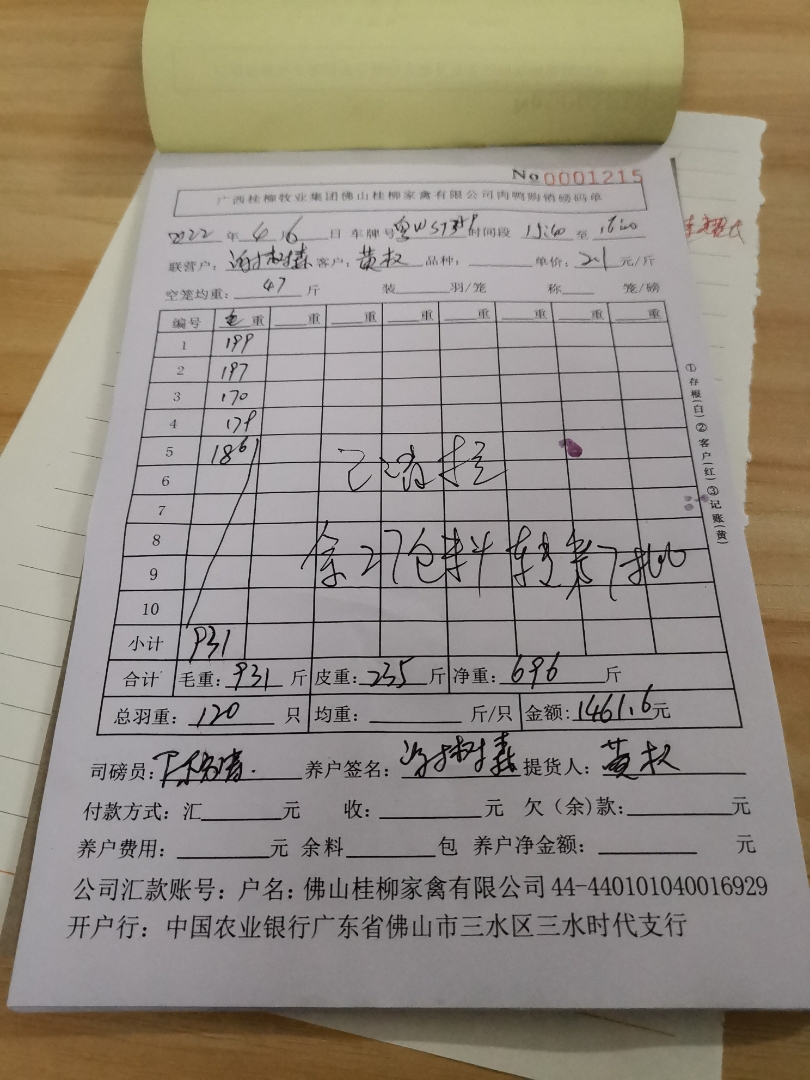 No 0001215
广西桂柳牧业集团佛山桂柳家禽有限公司肉鸭购销磅码单
2022 年 4.16 日 车牌号 时间段 15:40 至 16:00
联营户: 谢树森 客户: 黄权 品种: 单价: 2.1 元/斤
空笼均重: 47 斤 装 羽/笼 称 笼/磅
编号 毛重 重 重 重 重 重 重 重
1 199
2 197
3 170
4 179
5 186
6
7
8
9
10
已清栏
余27包料转至第7批
小计 931
合计 毛重: 931 斤 皮重: 235 斤 净重: 696 斤
总羽重: 120 只 均重: 斤/只 金额: 1461.6元
司磅员: 养户签名: 谢树森 提货人: 黄权
付款方式: 汇 元 收: 元 欠(余)款: 元
养户费用: 元 余料 包 养户净金额: 元
公司汇款账号: 户名: 佛山桂柳家禽有限公司 44-440101040016929
开户行: 中国农业银行广东省佛山市三水区三水时代支行
①存根(白)②客户(红)③记账(黄)